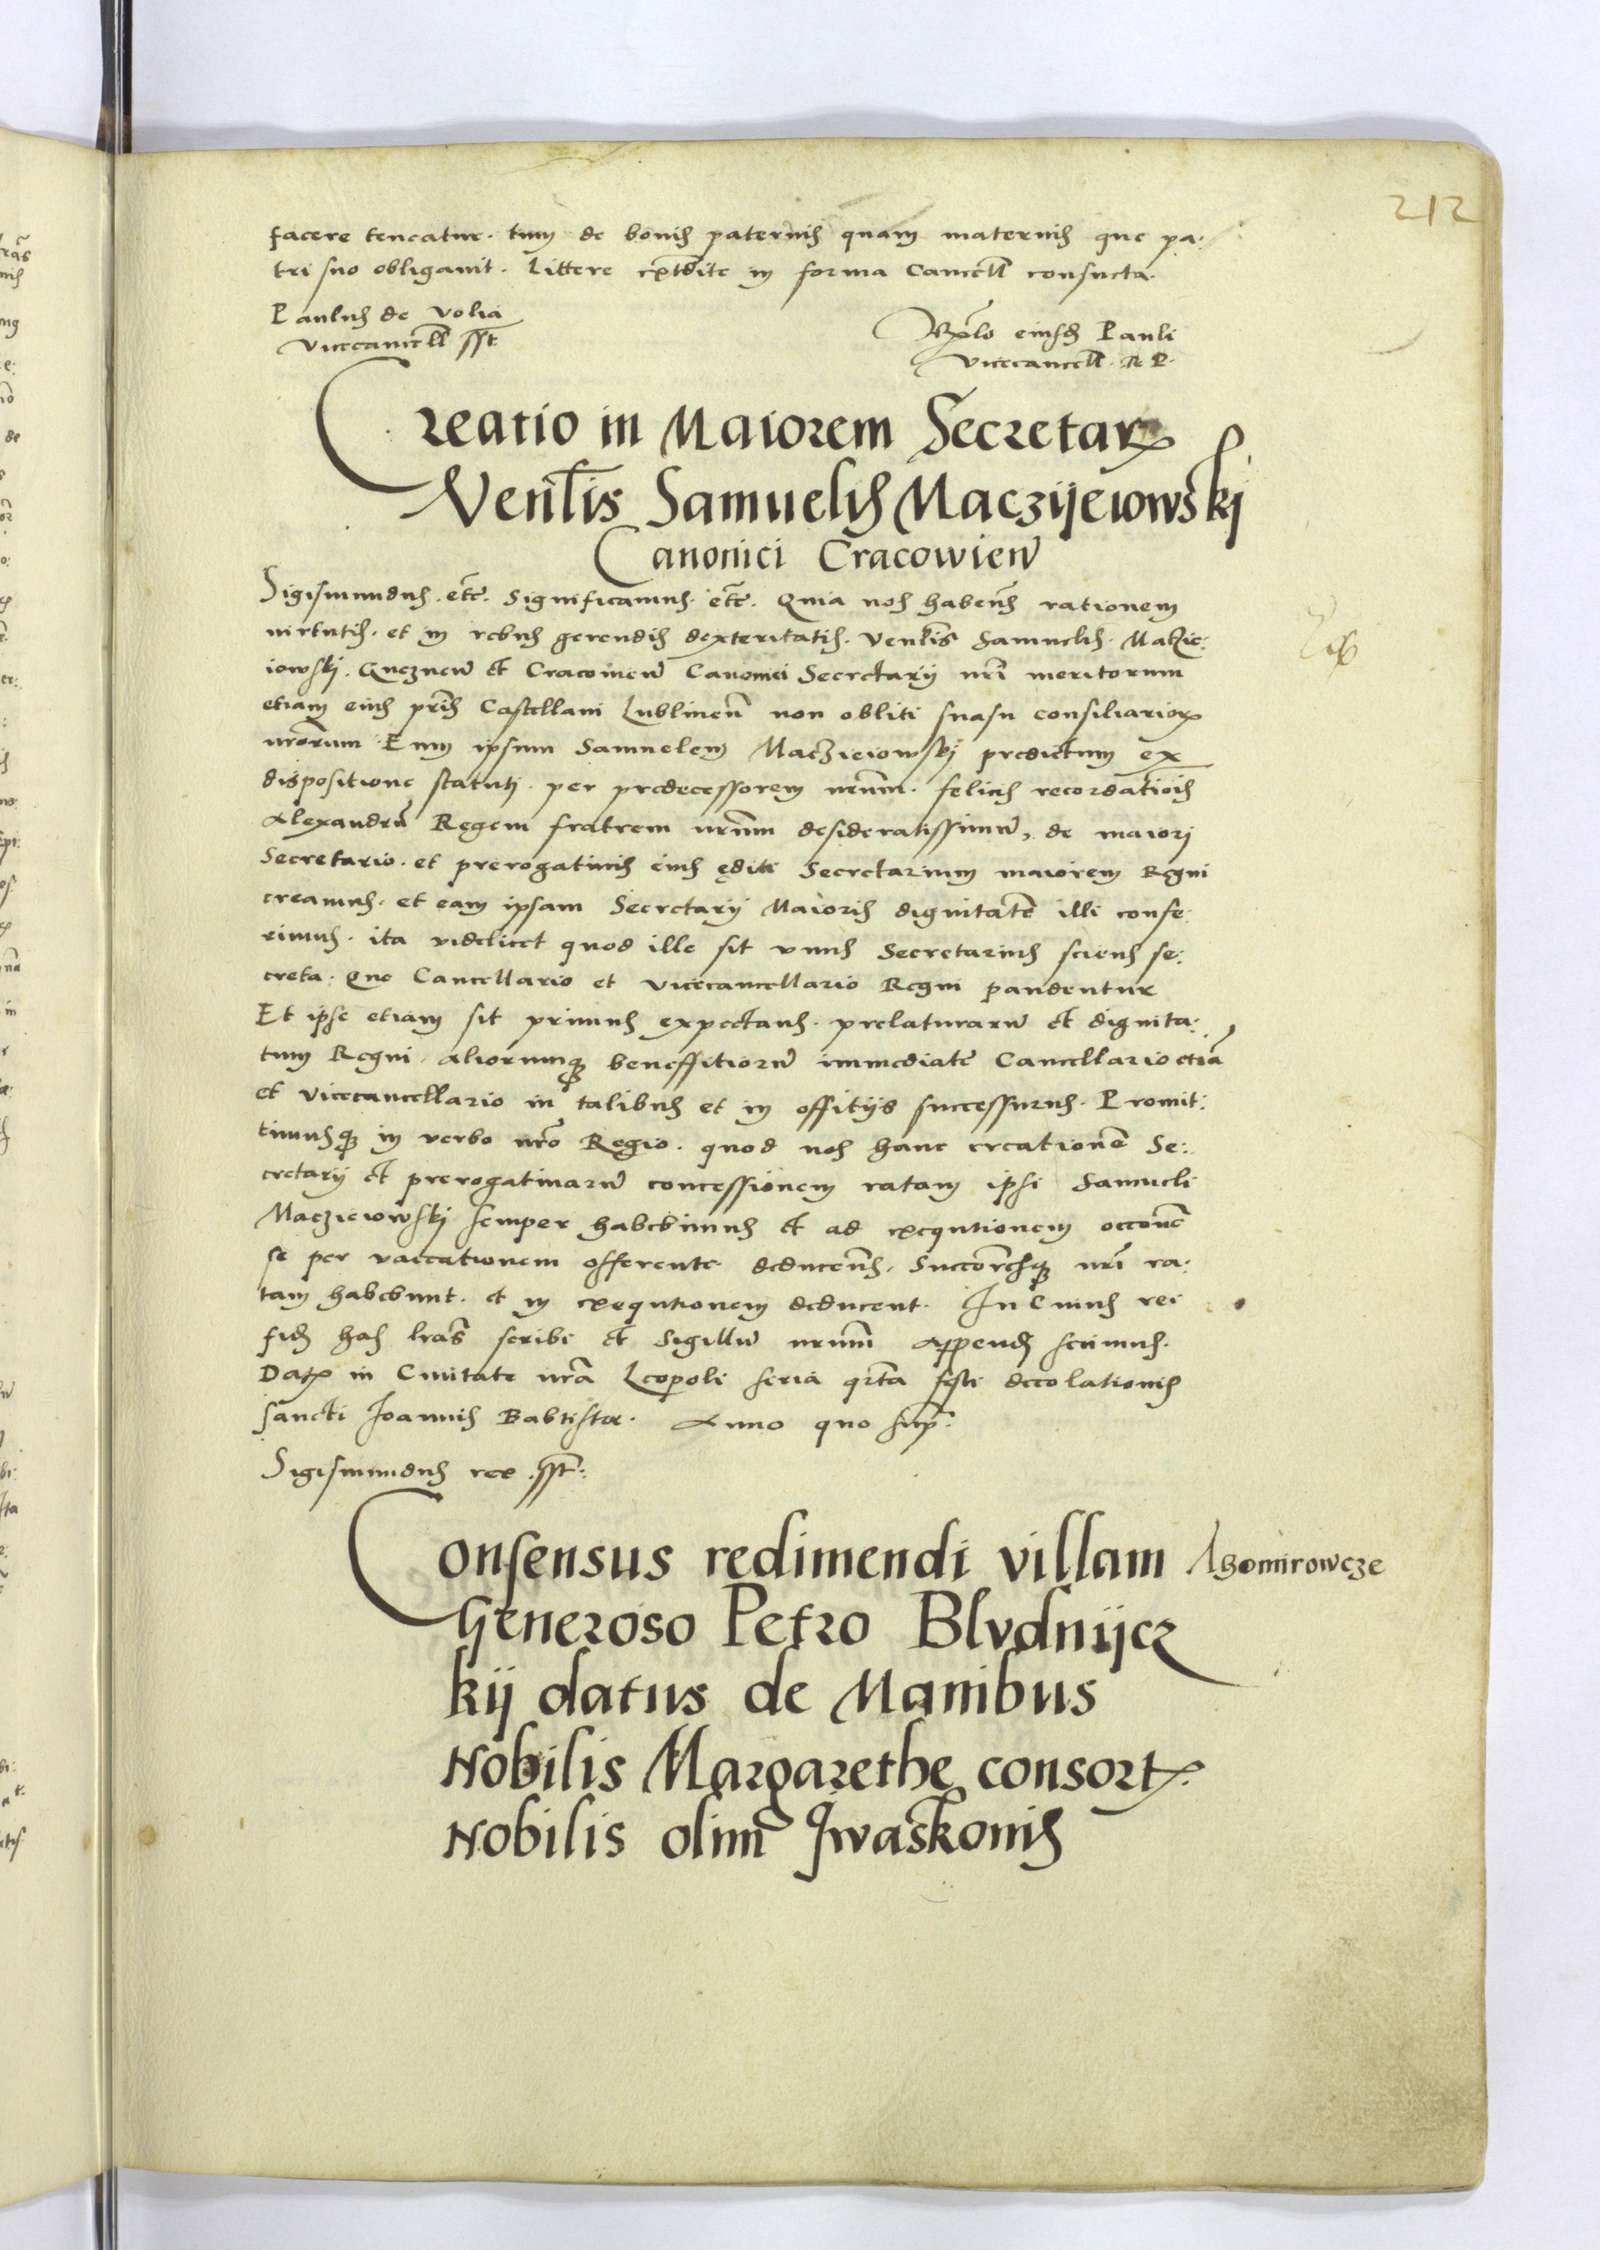 212
facere teneatur. tum de bonis paternis quam maternis que pa:
tri suo obligavit. Littere extradite in forma Cancell consueta.
Paulus de Volia
Vicecancell sst
Relo eiusd Pauli
Vicecancell. R P.
Creatio in Maiorem Secretar
Venlis Samuelis Maczijeiowskij
Canonici Cracowien
Sigismundus. etc. Significamus. etc. Quia nos habens rationem
virtutis. et in rebus gerendis dexteritatis. Venlis Samuelis. Maczie:
iowskj. Gneznen et Cracovien Canonici Secretarij nri meritorum
etiam eius pris Castellani Lublinen non obliti suasu consiliarior
nrorum. Eum ipsum Samuelem Macziciowskj predictum ex
dispositione statuti. per predecessorem nrum. felicis recordatiois
Alexandru Regem fratrem nrum desideratissimu, de maiorj
Secretario. et prerogativis eius editi Secretarium maiorem Regni
creamus. et eam ipsam Secretarij Maioris dignitate illi confe:
rimus. ita videlicet quod ille sit unus Secretarius sciens se:
creta. Que Cancellario et Vicecancellario Regni pandentur
Et ipse etiam sit primus expectans. prelaturaru et dignita:
tum Regni. aliorumq beneffitioru immediate Cancellario etia
et Vicecancellario in talibus et in offitijs successurus. Promit:
timusq in verbo nro Regio. quod nos hanc creatione Se:
cretarij et prerogativaru concessionem ratam ipsi Samueli
Macziciowskj semper habebimus et ad exequtionem occone
se per vaccationem offerente. deducens. Succoresq nri ra:
tam habebunt. et in exequtionem deducent. In Cuius rei
fid has lras scribi et Sigillu nrum append fecimus.
Dat in Civitate nra Leopoli feria qrta festi decolationis
sancti Joannis Babtiste. Anno quo sup.
Sigismundus rex. sst:
Consensus redimendi villam
Generoso Petro Blvdnijcz
kij datus de Manibus
Nobilis Margarethe consort
Nobilis olim Jwaskonis